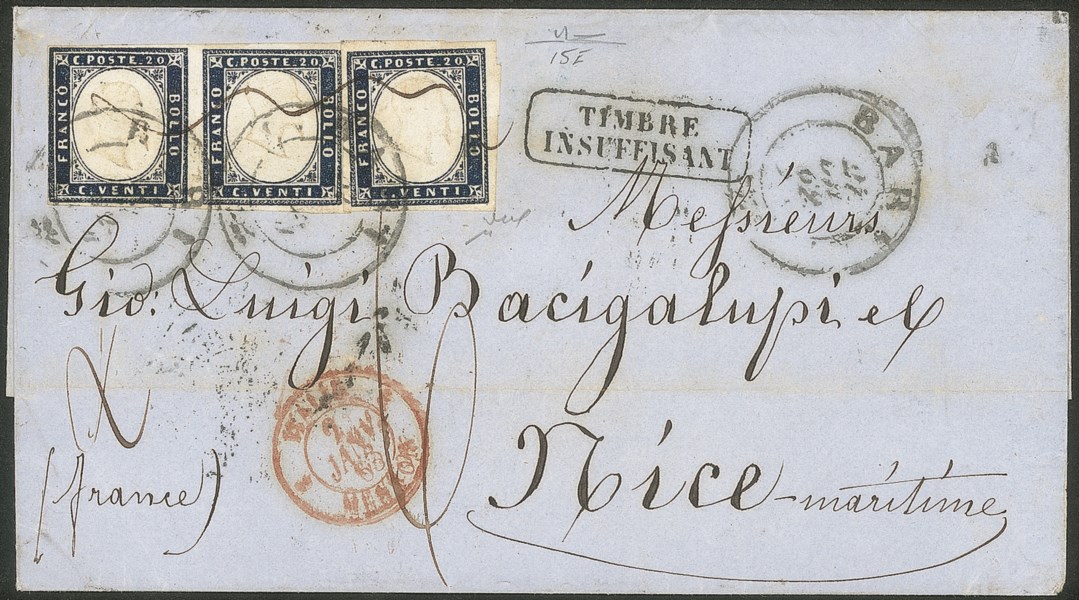 C. POSTE. 20
FRANCO
BOLLO
C. VENTI
C. POSTE. 20
FRANCO
BOLLO
C. VENTI
C. POSTE. 20
FRANCO
BOLLO
C. VENTI
15E
TIMBRE
INSUFFISANT
BARI
Messieurs
Gio: Luigi Bacigalupi et C
(france)
2
JANV
63
MENTON
Nice-maritime